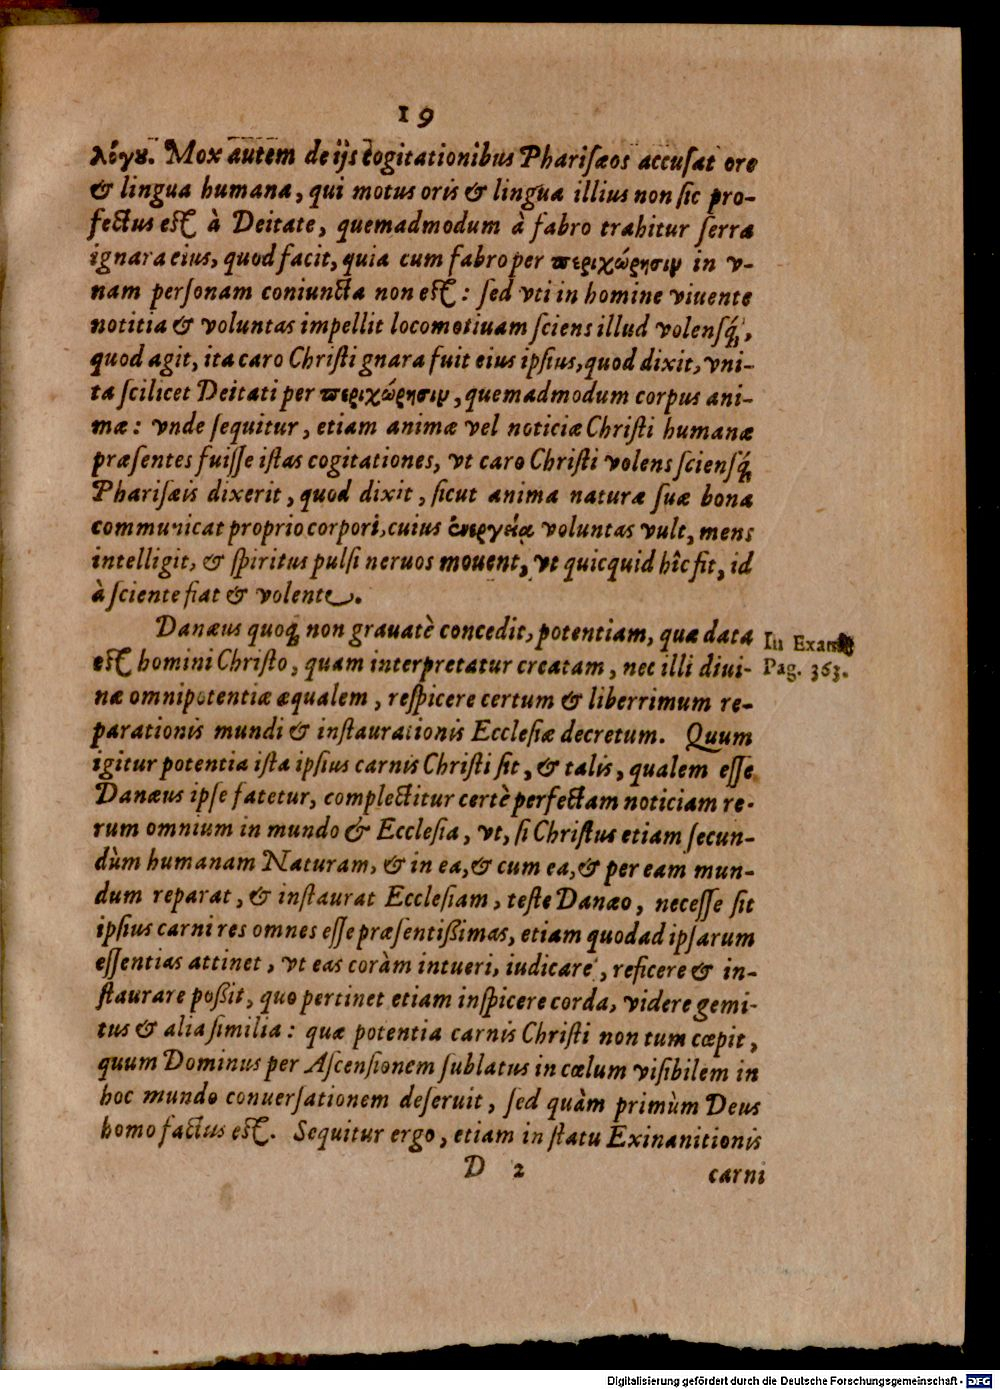 19
λόγȣ. Mox autem de ijs cogitationibus Phariſæos accuſat ore
& lingua humana, qui motus oris & lingua illius non ſic pro-
fectus eſt à Deitate, quemadmodum à fabro trahitur ſerra
ignara eius, quod facit, quia cum fabro per περιχώρησιν in v-
nam perſonam coniuncta non eſt: ſed vti in homine viuente
notitia & voluntas impellit locomotiuam ſciens illud volensq́;,
quod agit, ita caro Chriſti gnara fuit eius ipſius, quod dixit, vni-
ta ſcilicet Deitati per περιχώρησιν, quemadmodum corpus ani-
mæ: vnde ſequitur, etiam animæ vel noticiæ Chriſti humanæ
præſentes fuiſſe iſtas cogitationes, vt caro Chriſti volens ſciensq́;
Phariſæis dixerit, quod dixit, ſicut anima naturæ ſuæ bona
communicat proprio corpori, cuius ἐνεργείᾳ voluntas vult, mens
intelligit, & ſpiritus pulſi neruos mouent, vt quicquid hîc fit, id
à ſciente fiat & volente.
Danæus quoq; non grauatè concedit, potentiam, quæ data
eſt homini Chriſto, quam interpretatur creatam, nec illi diui-
næ omnipotentiæ æqualem, reſpicere certum & liberrimum re-
parationis mundi & inſtaurationis Eccleſiæ decretum. Quum
igitur potentia iſta ipſius carnis Chriſti ſit, & talis, qualem eſſe
Danæus ipſe fatetur, complectitur certè perfectam noticiam re-
rum omnium in mundo & Eccleſia, vt, ſi Chriſtus etiam ſecun-
dùm humanam Naturam, & in ea, & cum ea, & per eam mun-
dum reparat, & inſtaurat Eccleſiam, teſte Danæo, neceſſe ſit
ipſius carni res omnes eſſe præſentißimas, etiam quod ad ipſarum
eſſentias attinet, vt eas coràm intueri, iudicare, reficere & in-
ſtaurare poßit, quo pertinet etiam inſpicere corda, videre gemi-
tus & alia ſimilia: quæ potentia carnis Chriſti non tum cœpit,
quum Dominus per Aſcenſionem ſublatus in cœlum viſibilem in
hoc mundo conuerſationem deſeruit, ſed quàm primùm Deus
homo factus eſt. Sequitur ergo, etiam in ſtatu Exinanitionis
D 2
carni
In Exam.
Pag. 363.
Digitalisierung gefördert durch die Deutsche Forschungsgemeinschaft - DFG